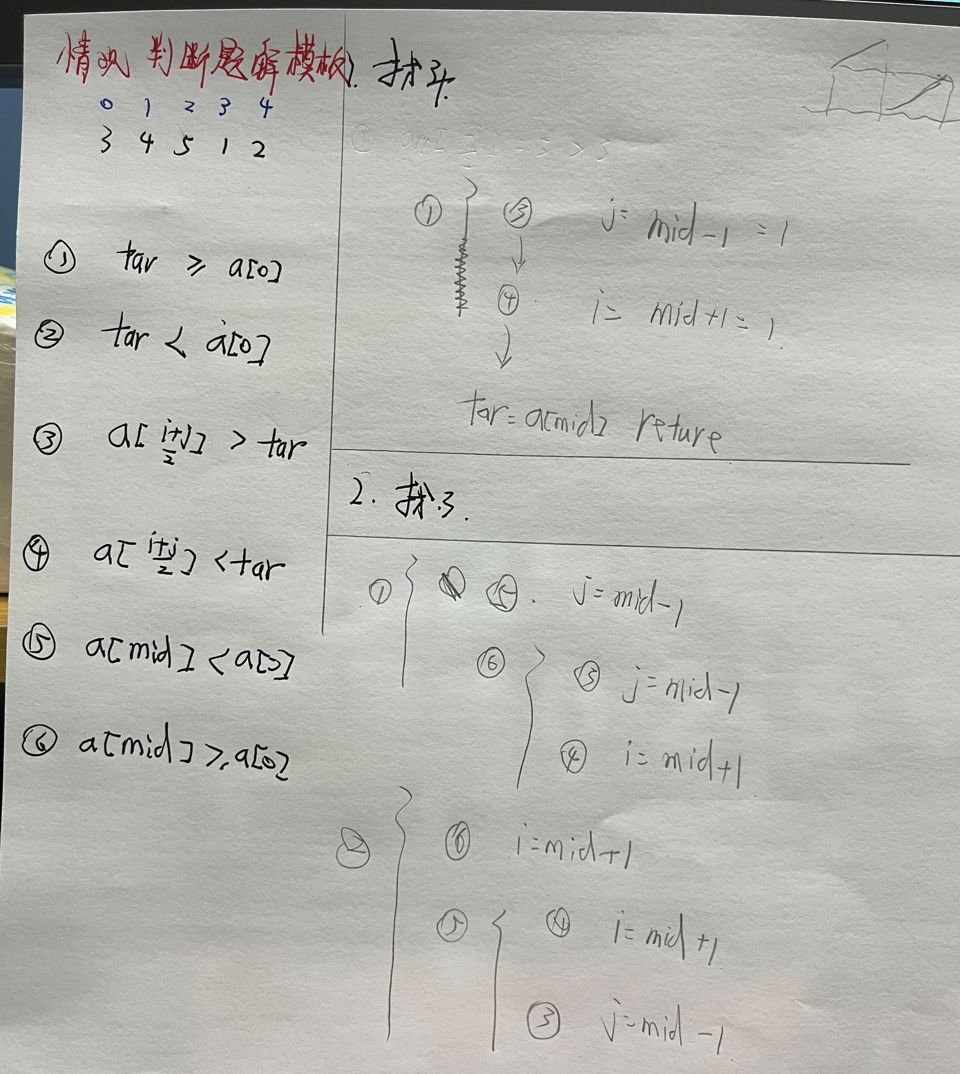 情况判断题解模板
0 1 2 3 4
3 4 5 1 2
① tar ≥ a[0]
② tar < a[0]
③ a[(i+j)/2] > tar
④ a[(i+j)/2] < tar
⑤ a[mid] < a[0]
⑥ a[mid] ≥ a[0]
1. 找4.
① { ③ j= mid-1 =1
↓
④ i= mid+1=1.
↓
tar=a[mid] reture
2. 找3.
① { ⑤. j=mid-1
⑥ { ③ j=mid-1
④ i=mid+1
② { ⑥ i=mid+1
⑤ { ④ i=mid+1
③ j=mid-1